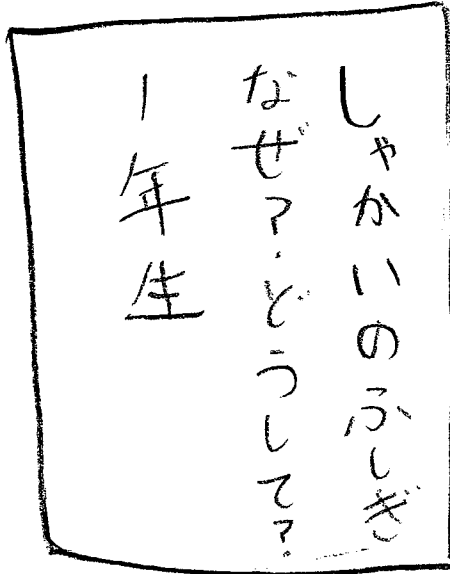 しゃかいのふしぎ
なぜ？どうして？
1年生